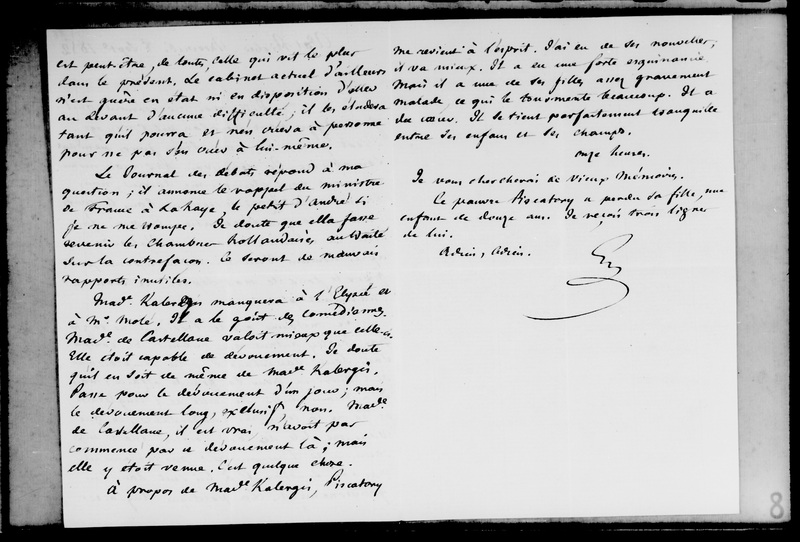 est peut-être, de toutes, celle qui vit le plus
dans le présent. Le cabinet actuel d'ailleurs
n'est guère en état ni en disposition d'aller
au devant d'aucune difficulté ; il les éludera
tant qu'il pourra et n'en créera à personne
pour ne pas s'en créer à lui-même.
Le Journal des débats répond à ma
question ; il annonce le rappel du ministre
de France à la haye, le petit d'André si
je ne me trompe. Je doute que cela fasse
revenir les Chambres hollandaises au traité
sur la contrefaçon. Ce seront de mauvais
rapports inutiles.
Made. Kalergis manquera à l'Elysée et
à Mr. Molé. Il a le goût des comédiennes.
Made. de Castellane valoit mieux que celle-ci.
Elle étoit capable de dévouement. Je doute
qu'il en soit de même de made Kalergis.
Passe pour le dévouement d'un jour ; mais
le dévouement long, exclusif, non. Made.
de Castellane, il est vrai, n'avoit pas
commencé par ce dévouement là ; mais
elle y étoit venue. C'est quelque chose.
à propos de Made Kalergis, Piscatory
me revient à l'esprit. J'ai eu de ses nouvelles ;
il va mieux. Il a eu une forte esquinancie.
Mais il a une de ses filles assez gravement
malade, ce qui le tourmente beaucoup. Il a
du cœur. Il se tient parfaitement tranquille
entre ses enfans et ses champs.
onze heures.
Je vous chercherai de vieux Mémoires.
Ce pauvre Piscatory a perdu sa fille, une
enfant de douze ans. Je reçois trois lignes
de lui.
Adieu, Adieu.
8